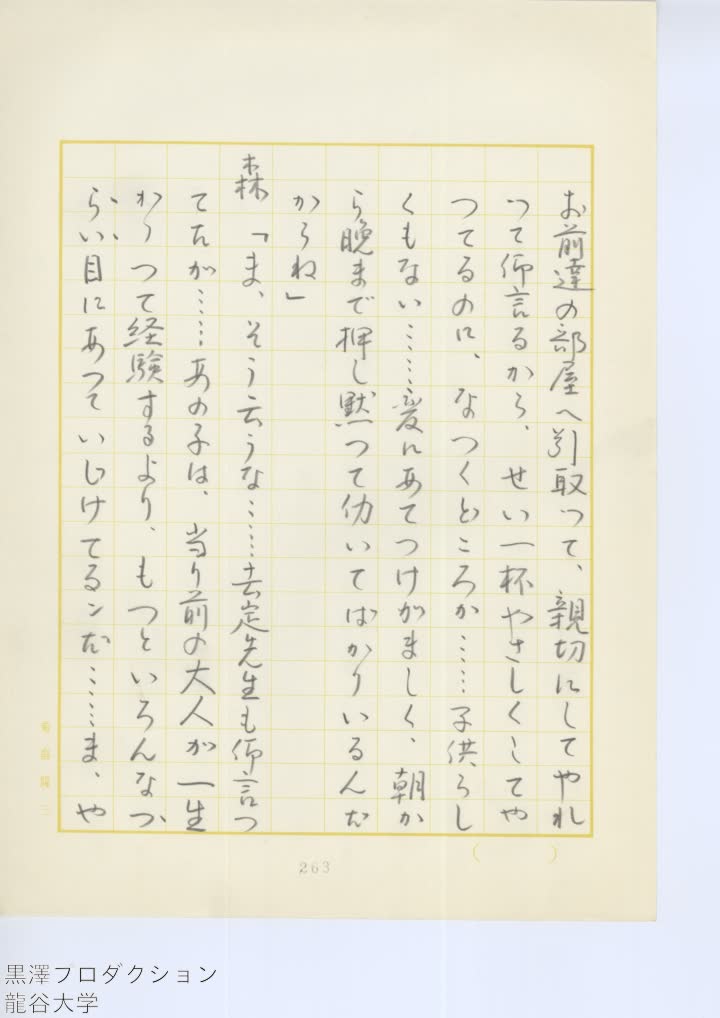 お前達の部屋へ引取って、親切にしてやれ
って仰言るから、せい一杯やさしくしてや
つてるのに、なつくどころか……子供らし
くもない……変にあてつけがましく、朝か
ら晩まで押し黙つて仂いてばかりいるんだ
からね」
森「ま、そう云うな……去定先生も仰言つ
てたが……あの子は、当り前の大人が一生
かゝつて経験するより、もつといろんなつ
らい目にあつていじけてるンだ……ま、や
263
黒澤プロダクション
龍谷大学